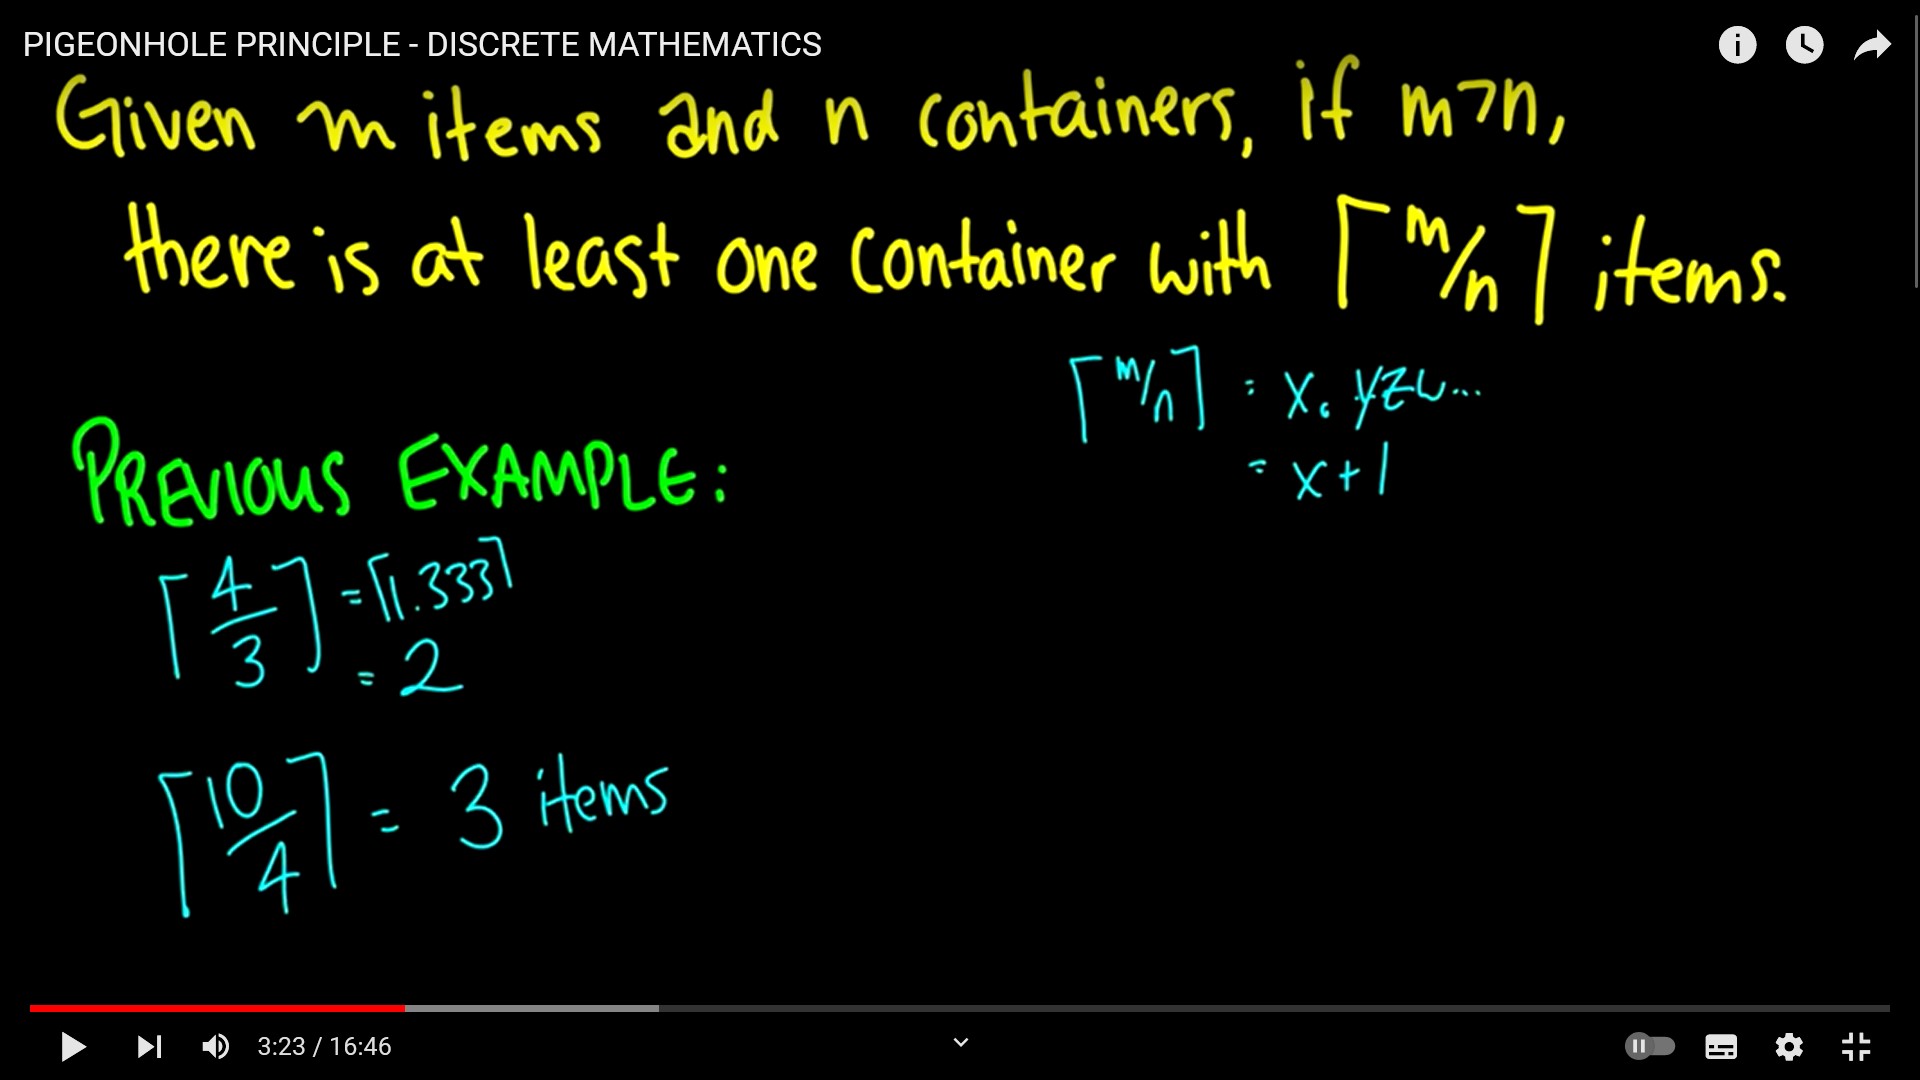 PIGEONHOLE PRINCIPLE - DISCRETE MATHEMATICS
Given m items and n containers, if m>n,
there is at least one container with ⌈m/n⌉ items.
⌈m/n⌉ = x.yzw...
= x+1
PREVIOUS EXAMPLE:
⌈4/3⌉ = ⌈1.333⌉
= 2
⌈10/4⌉ = 3 items
3:23 / 16:46